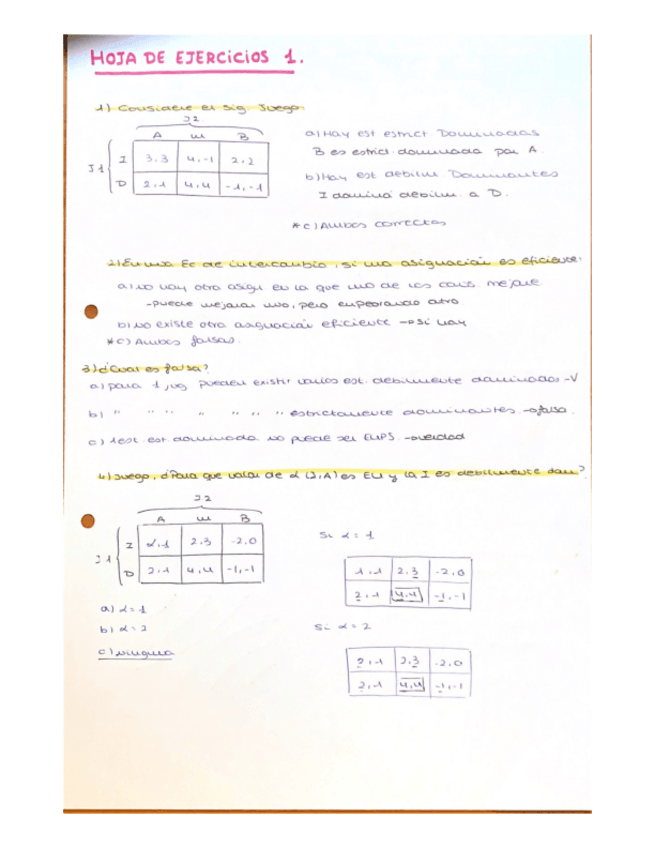 HOJA DE EJERCICIOS 1.
1) Considere el sig. Juego:
J2
A M B
J1 I 3,3 4,-1 2,2
D 2,1 4,4 -1,-1
a) Hay est estrict. Dominadas
B es estrict. dominada por A.
b) Hay est debilm. Dominantes
I domina debilm. a D.
* c) Ambas correctas
2) En una Ec de intercambio, si una asignación es eficiente:
a) no hay otra asign en la que uno de los cons. mejore
- puede mejorar uno, pero empeorando otro
b) no existe otra asignación eficiente → si hay
* c) Ambas falsas.
3) ¿Cual es falsa?
a) para 1 jug pueden existir varias est. debilmente dominadas - V
b) " " " " " " " estrictamente dominantes → falsa.
c) 1 est. est dominada no puede ser ENPS. → verdad
4) Juego, ¿Para que valor de α (I,A) es EN y la I es debilmente dom?
J2
A M B
J1 I α,1 2,3 -2,0
D 2,1 4,4 -1,-1
a) α = 1
b) α = 2
c) ninguna
Si α = 1
1,1 2,3 -2,0
2,1 4,4 -1,-1
Si α = 2
2,1 2,3 -2,0
2,1 4,4 -1,-1